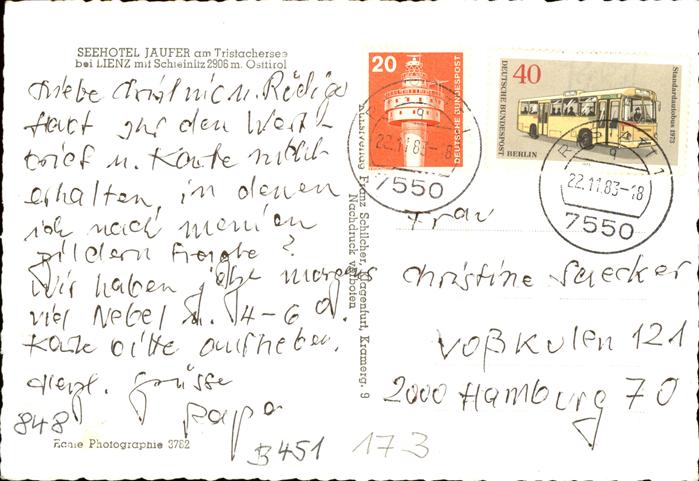 SEEHOTEL JAUFER am Tristachersee
bei LIENZ mit Schleinitz 2906 m. Osttirol
Liebe Christine u. Rüdiger
Habt ihr den Wert-
brief u. Karte
erhalten, in denen
ich nach meinen
Bildern fragte?
Wir haben jetzt morgens
viel Nebel u. 4-6 °.
Karte bitte aufheben.
Herzl. Grüsse
Papa
848
Echte Photographie 3782
B451 173
Kunstverlag Franz Schilcher, Klagenfurt, Kramerg. 9
Nachdruck verboten
20
DEUTSCHE BUNDESPOST
40
DEUTSCHE BUNDESPOST BERLIN
Standardautobus 1973
22.11.83-18
7550
22.11.83-18
7550
Frau
Christine
Voßkulen 121
2000 Hamburg 70